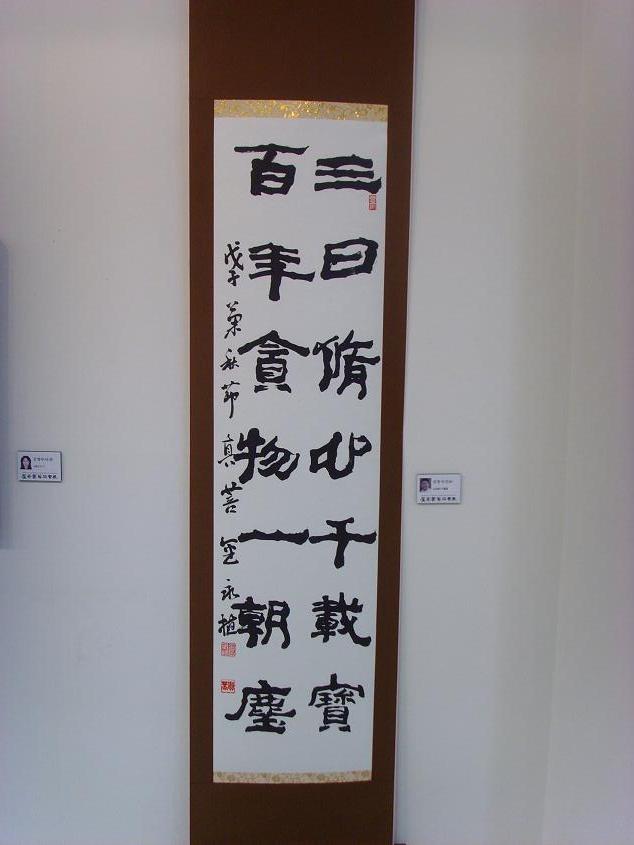 三日脩心千載寶
百年貪物一朝塵
戊子 菊秋節 真菩 金永植